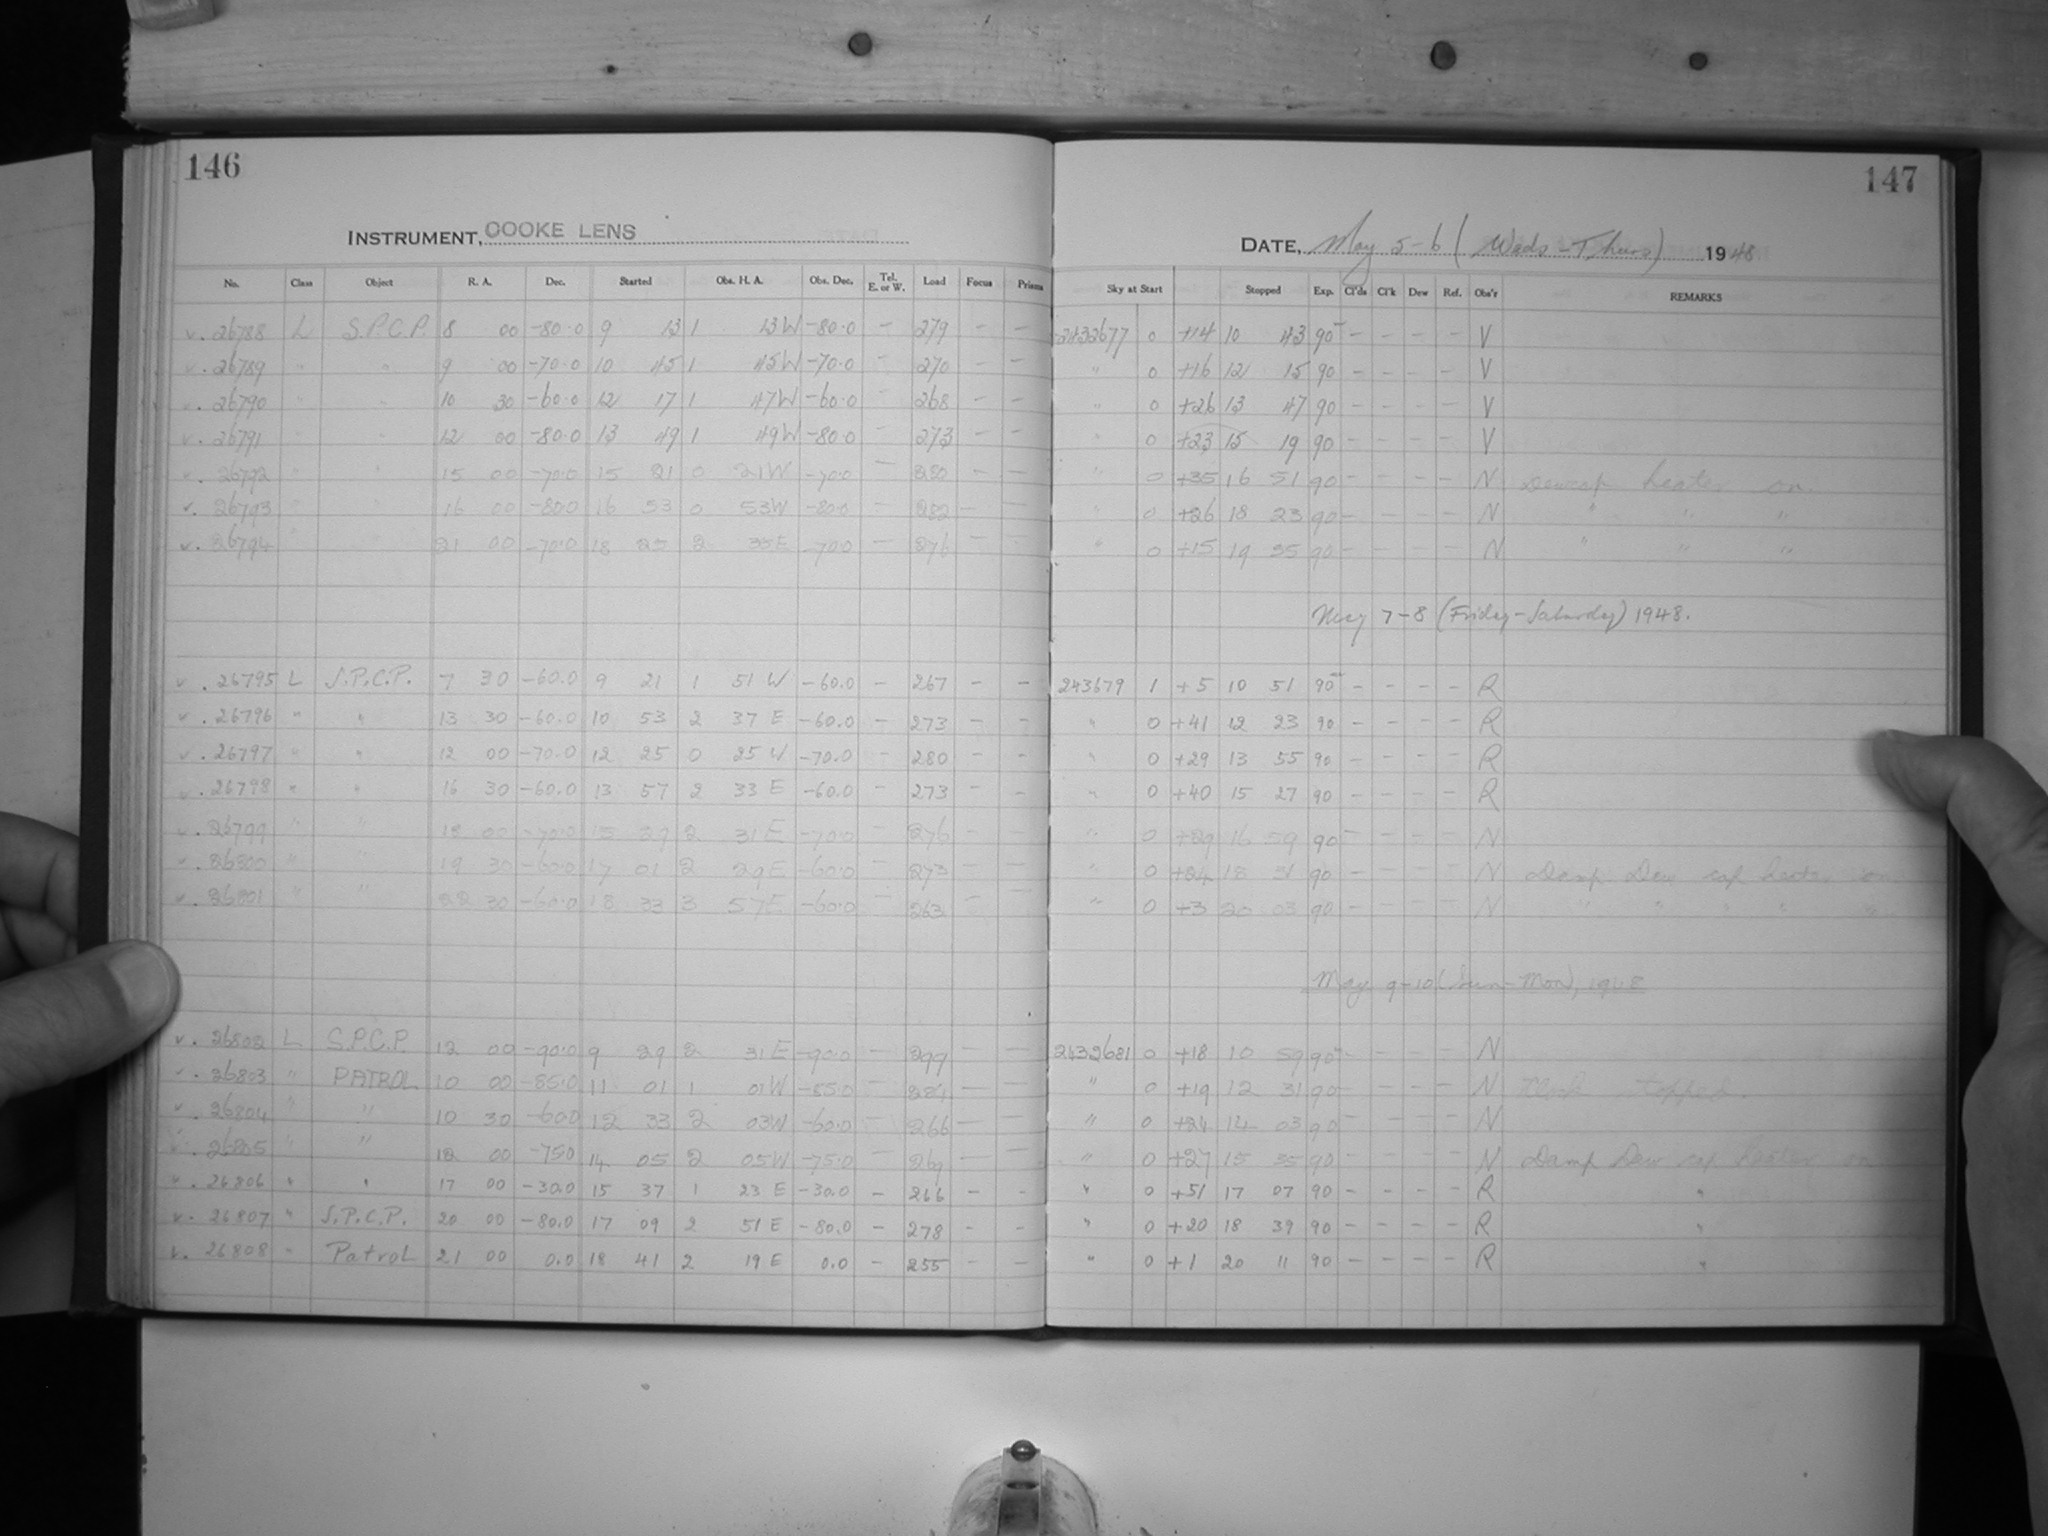 146
147
INSTRUMENT, COOKE LENS
DATE, May 5-6 (Weds-Thurs) 1948
No. Class Object R. A. Dec. Started Obs. H. A. Obs. Dec. Tel. E. or W. Load Focus Prisms Sky at Start Stopped Exp. Cl'ds Cl'k Dew Ref. Obs'r REMARKS
v. 26788 L S.P.C.P. 8 00 -80.0 9 13 1 13W -80.0 - 279 - - 2432677 0 +14 10 43 90 - - - - V
v. 26789 " " 9 00 -70.0 10 45 1 45W -70.0 - 270 - - " 0 +16 12 15 90 - - - - V
v. 26790 " " 10 30 -60.0 12 17 1 47W -60.0 - 268 - - " 0 +26 13 47 90 - - - - V
v. 26791 " " 12 00 -80.0 13 49 1 49W -80.0 - 273 - - " 0 +23 15 19 90 - - - - V
v. 26792 " " 15 00 -70.0 15 21 0 21W -70.0 - 280 - - " 0 +35 16 51 90 - - - - N Dewcap heater on
v. 26793 " " 16 00 -80.0 16 53 0 53W -80.0 - 282 - - " 0 +26 18 23 90 - - - - N " " "
v. 26794 " " 21 00 -70.0 18 25 2 35E -70.0 - 276 - - " 0 +15 19 55 90 - - - - N " " "
May 7-8 (Friday-Saturday) 1948.
v. 26795 L S.P.C.P. 7 30 -60.0 9 21 1 51 W -60.0 - 267 - - 243679 1 +5 10 51 90 - - - - R
v. 26796 " " 13 30 -60.0 10 53 2 37 E -60.0 - 273 - - " 0 +41 12 23 90 - - - - R
v. 26797 " " 12 00 -70.0 12 25 0 25 W -70.0 - 280 - - " 0 +29 13 55 90 - - - - R
v. 26798 " " 16 30 -60.0 13 57 2 33 E -60.0 - 273 - - " 0 +40 15 27 90 - - - - R
v. 26799 " " 18 00 -70.0 15 29 2 31E -70.0 - 276 - - " 0 +29 16 59 90 - - - - N
v. 26800 " " 19 30 -60.0 17 01 2 29E -60.0 - 273 - - " 0 +24 18 31 90 - - - - N Damp Dew cap heater on
v. 26801 " " 22 30 -60.0 18 33 3 57E -60.0 - 263 - " 0 +3 20 03 90 - - - - N " " " " "
May 9-10 (Sun-Mon), 1948
v. 26802 L S.P.C.P. 12 00 -90.0 9 29 2 31E -90.0 - 299 - - 2432681 0 +18 10 59 90 - - - - N
v. 26803 " PATROL 10 00 -85.0 11 01 1 01W -85.0 - 284 - - " 0 +19 12 31 90 - - - - N Clock stopped.
v. 26804 " " 10 30 -60.0 12 33 2 03W -60.0 - 266 - " 0 +24 14 03 90 - - - - N
v. 26805 " " 12 00 -75.0 14 05 2 05W -75.0 - 269 - - " 0 +27 15 35 90 - - - - N Damp Dew cap heater on
v. 26806 " " 17 00 -30.0 15 37 1 23 E -30.0 - 266 - - " 0 +51 17 07 90 - - - - R "
v. 26807 " S.P.C.P. 20 00 -80.0 17 09 2 51 E -80.0 - 278 - - " 0 +20 18 39 90 - - - - R "
v. 26808 " Patrol 21 00 0.0 18 41 2 19 E 0.0 - 255 - - " 0 +1 20 11 90 - - - - R "